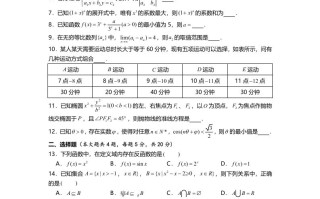 7. 已知(1+x)ⁿ的展开式中, 唯有x³的系数最大, 则(1+x)ⁿ的系数和为____.
8. 已知函数f(x)=3ˣ+a/(3ˣ+1)(a>0)的最小值为5, 则a=____.
9. 在无穷等比数列{aₙ}中, lim(a₁-aₙ)=4, 则a₂的取值范围是____.
10. 某人某天需要运动总时长大于等于60分钟, 现有五项运动可以选择, 如表所示, 问有
几种运动方式组合____
A运动 B运动 C运动 D运动 E运动
7点-8点 8点-9点 9点-10点 10点-11点 11点-12点
30分钟 20分钟 40分钟 30分钟 30分钟
11. 已知椭圆x²+y²/b²=1(0<b<1)的左、右焦点为F₁、F₂, 以O为顶点, F₂为焦点作抛物
线交椭圆于P, 且∠PF₁F₂=45°, 则抛物线的准线方程是____.
12. 已知θ>0, 存在实数φ, 使得对任意n∈N*, cos(nθ+φ)<√3/2, 则θ的最小值是____.
二、选择题
13. 下列函数中, 在定义域内存在反函数的是( )
A. f(x)=x² B. f(x)=sin x C. f(x)=2ˣ D. f(x)=1
14. 已知集合A={x|x>-1, x∈R}, B={x|x²-x-2≥0, x∈R}, 则下列关系中, 正确
的是( )